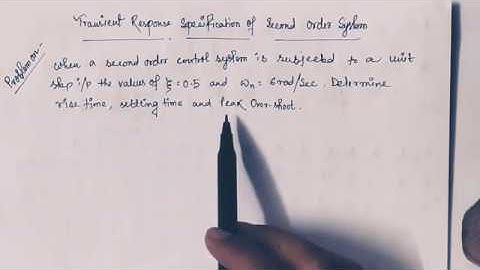 Transient Response Specification of Second Order System
Problem on:-
When a second order control system is subjected to a unit
step i/p the values of ξ = 0.5 and ωn = 6 rad/sec. Determine
rise time, settling time and Peak Over-shoot.